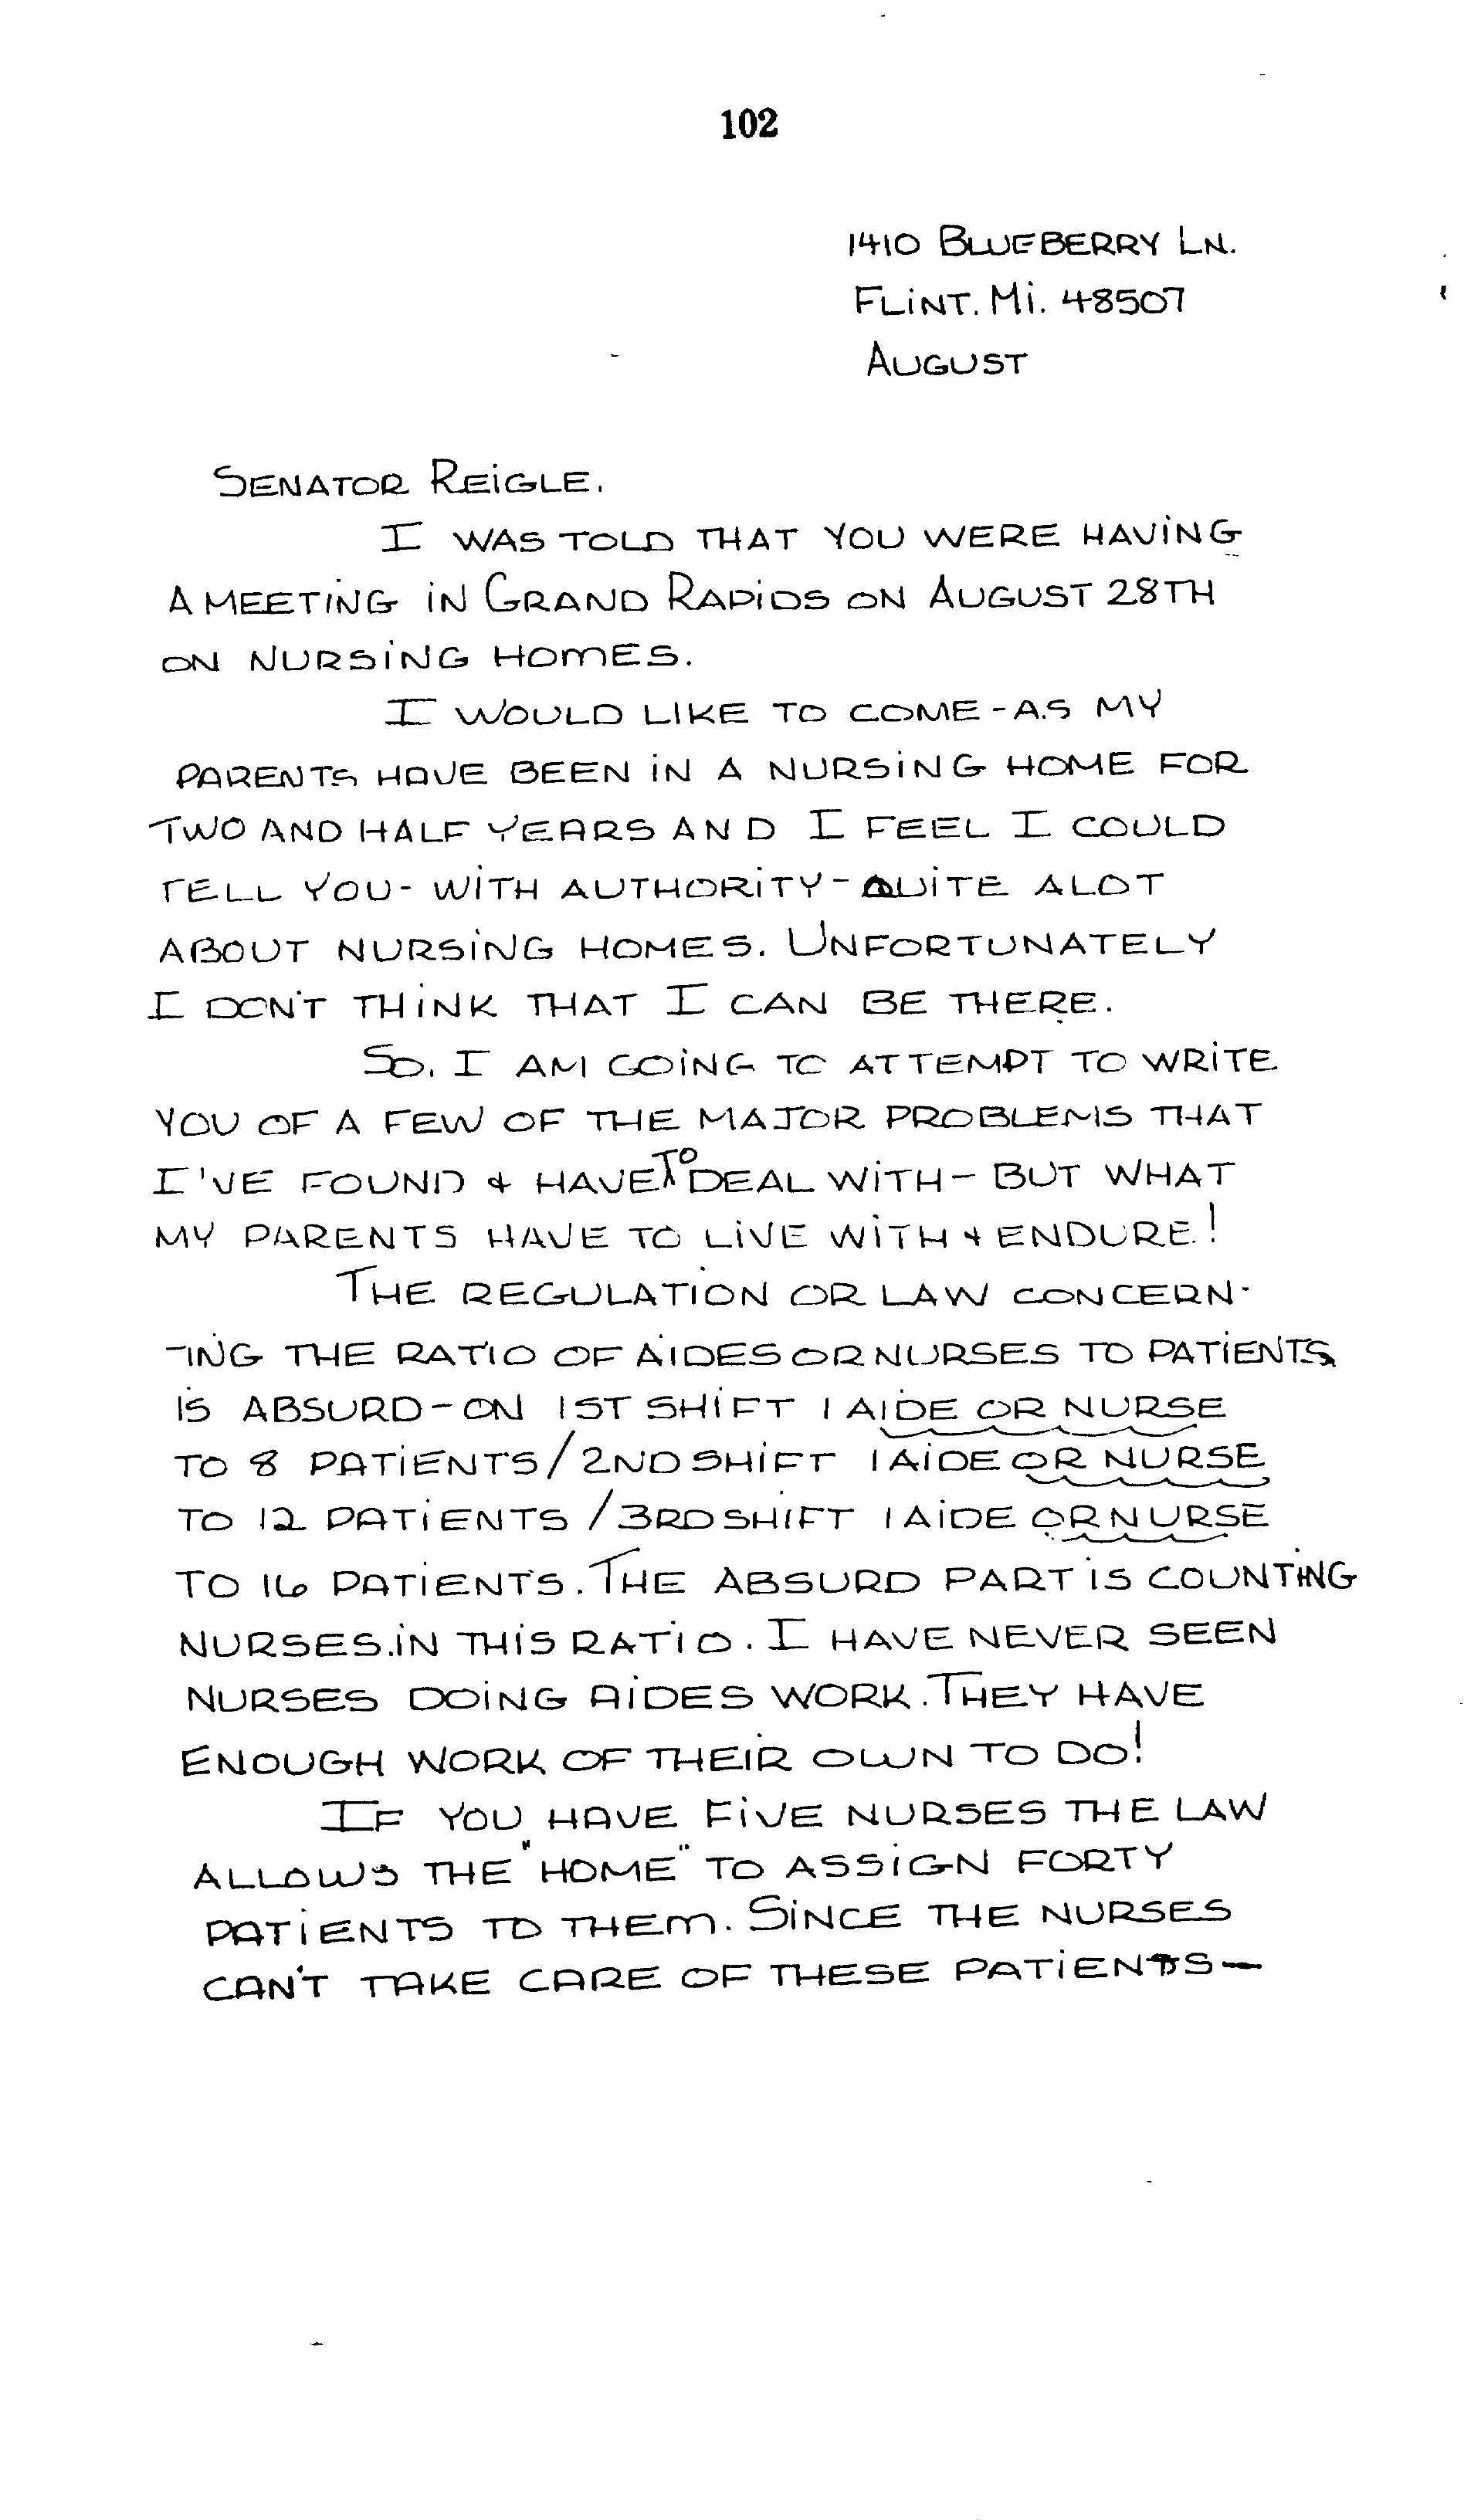 102
1410 BLUEBERRY LN.
FLINT. MI. 48507
AUGUST
SENATOR REIGLE.
I WAS TOLD THAT YOU WERE HAVING
A MEETING IN GRAND RAPIDS ON AUGUST 28TH
ON NURSING HOMES.
I WOULD LIKE TO COME - AS MY
PARENTS HAVE BEEN IN A NURSING HOME FOR
TWO AND HALF YEARS AND I FEEL I COULD
TELL YOU - WITH AUTHORITY - QUITE ALOT
ABOUT NURSING HOMES. UNFORTUNATELY
I DON'T THINK THAT I CAN BE THERE.
SO, I AM GOING TO ATTEMPT TO WRITE
YOU OF A FEW OF THE MAJOR PROBLEMS THAT
I'VE FOUND & HAVE TO DEAL WITH - BUT WHAT
MY PARENTS HAVE TO LIVE WITH & ENDURE!
THE REGULATION OR LAW CONCERN-
-ING THE RATIO OF AIDES OR NURSES TO PATIENTS
IS ABSURD - ON 1ST SHIFT 1 AIDE OR NURSE
TO 8 PATIENTS / 2ND SHIFT 1 AIDE OR NURSE
TO 12 PATIENTS / 3RD SHIFT 1 AIDE OR NURSE
TO 16 PATIENTS. THE ABSURD PART IS COUNTING
NURSES.IN THIS RATIO. I HAVE NEVER SEEN
NURSES DOING AIDES WORK. THEY HAVE
ENOUGH WORK OF THEIR OWN TO DO!
IF YOU HAVE FIVE NURSES THE LAW
ALLOWS THE "HOME" TO ASSIGN FORTY
PATIENTS TO THEM. SINCE THE NURSES
CAN'T TAKE CARE OF THESE PATIENTS —